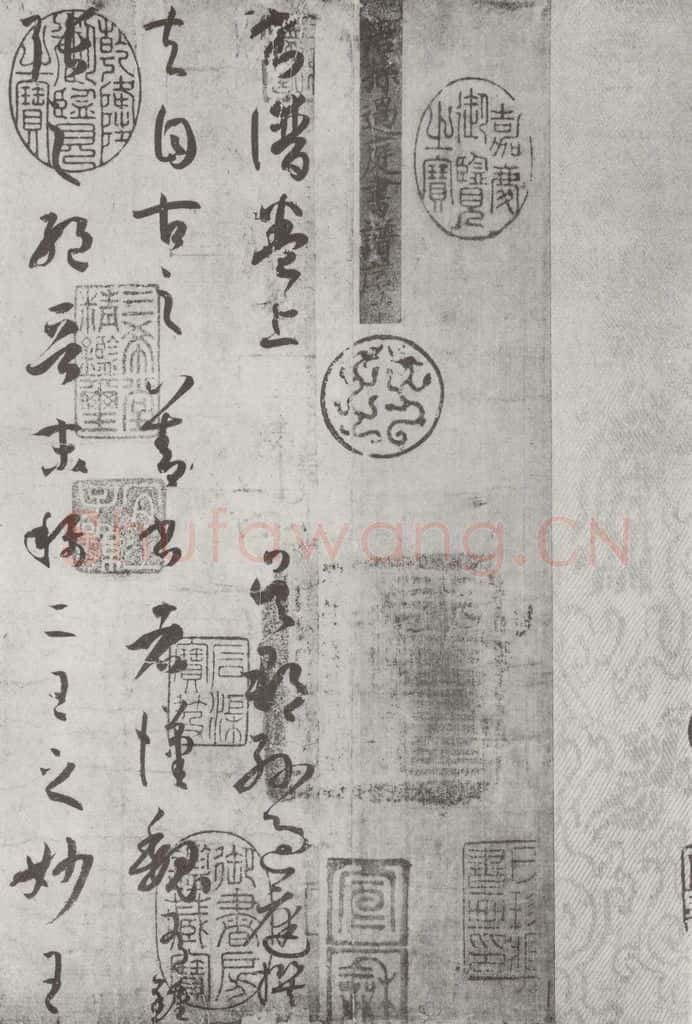 嘉慶御覽之寶
唐孫過庭書譜序
宣和
書譜卷上 吳郡孫過庭撰
夫自古之善書者漢魏有鍾
張之絕晉末稱二王之妙王
乾隆御覽之寶
三希堂精鑑璽
宜子孫
石渠寶笈
御書房鑑藏寶
Shufawang.CN